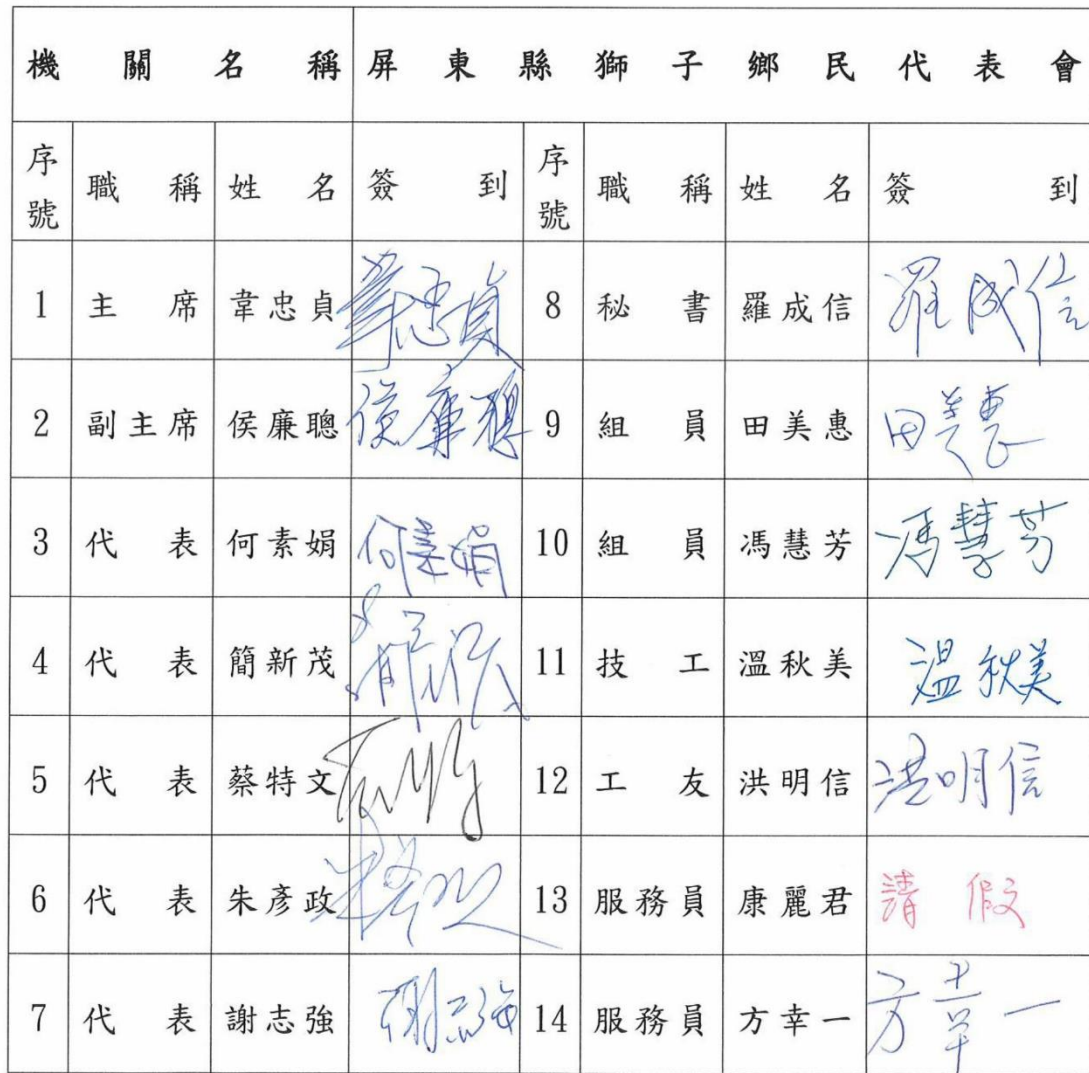 機關名稱 屏東縣獅子鄉民代表會
序號 職稱 姓名 簽到 序號 職稱 姓名 簽到
1 主席 韋忠貞 韋忠貞 8 秘書 羅成信 羅成信
2 副主席 侯廉聰 侯廉聰 9 組員 田美惠 田美惠
3 代表 何素娟 何素娟 10 組員 馮慧芳 馮慧芳
4 代表 簡新茂 11 技工 溫秋美 溫秋美
5 代表 蔡特文 12 工友 洪明信 洪明信
6 代表 朱彥政 13 服務員 康麗君 請假
7 代表 謝志強 謝志強 14 服務員 方幸一 方幸一